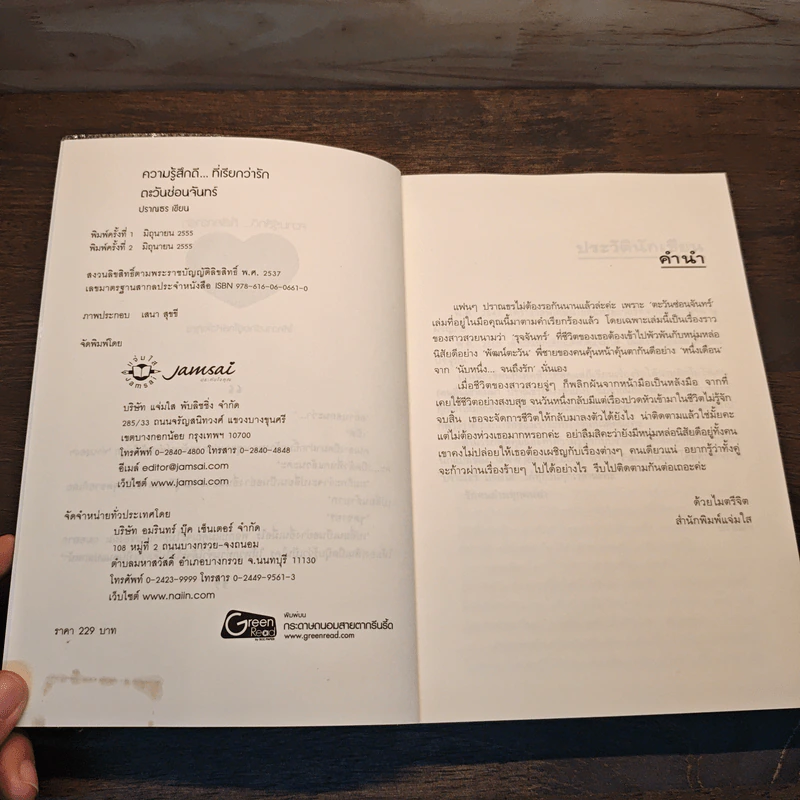 ความรู้สึกดี... ที่เรียกว่ารัก
ตะวันซ่อนจันทร์
ปราณธร เขียน
พิมพ์ครั้งที่ 1 มิถุนายน 2555
พิมพ์ครั้งที่ 2 มิถุนายน 2555
สงวนลิขสิทธิ์ตามพระราชบัญญัติลิขสิทธิ์ พ.ศ. 2537
เลขมาตรฐานสากลประจำหนังสือ ISBN 978-616-06-0661-0
ภาพประกอบ เสนา สุขชี
จัดพิมพ์โดย
แจ่มใส
Jamsai
Jamsai
บริษัท แจ่มใส พับลิชชิ่ง จำกัด
285/33 ถนนจรัญสนิทวงศ์ แขวงบางขุนศรี
เขตบางกอกน้อย กรุงเทพฯ 10700
โทรศัพท์ 0-2840-4800 โทรสาร 0-2840-4848
อีเมล์ editor@jamsai.com
เว็บไซต์ www.jamsai.com
จัดจำหน่ายทั่วประเทศโดย
บริษัท อมรินทร์ บุ๊ค เซ็นเตอร์ จำกัด
108 หมู่ที่ 2 ถนนบางกรวย-จงถนอม
ตำบลมหาสวัสดิ์ อำเภอบางกรวย จ.นนทบุรี 11130
โทรศัพท์ 0-2423-9999 โทรสาร 0-2449-9561-3
เว็บไซต์ www.naiin.com
ราคา 229 บาท
Green Read
พิมพ์บน
กระดาษถนอมสายตากรีนรี้ด
www.greenread.com
คำนำ
แฟนๆ ปราณธรไม่ต้องรอกันนานแล้วล่ะค่ะ เพราะ 'ตะวันซ่อนจันทร์'
เล่มที่อยู่ในมือคุณนี้มาตามคำเรียกร้องแล้ว โดยเฉพาะเล่มนี้เป็นเรื่องราว
ของสาวสวยนามว่า 'รุจจันทร์' ที่ชีวิตของเธอต้องเข้าไปพัวพันกับหนุ่มหล่อ
นิสัยดีอย่าง 'พัฒน์ตะวัน' พี่ชายของคนคุ้นหน้าคุ้นตากันดีอย่าง 'หนึ่งเดือน'
จาก 'นับหนึ่ง... จนถึงรัก' นั่นเอง
เมื่อชีวิตของสาวสวยจู่ๆ ก็พลิกผันจากหน้ามือเป็นหลังมือ จากที่
เคยใช้ชีวิตอย่างสงบสุข จนวันหนึ่งกลับมีแต่เรื่องปวดหัวเข้ามาในชีวิตไม่รู้จัก
จบสิ้น เธอจะจัดการชีวิตให้กลับมาลงตัวได้ยังไง น่าติดตามแล้วใช่มั้ยคะ
แต่ไม่ต้องห่วงเธอมากหรอกค่ะ อย่าลืมสิคะว่ายังมีหนุ่มหล่อนิสัยดีอยู่ทั้งคน
เขาคงไม่ปล่อยให้เธอต้องเผชิญกับเรื่องต่างๆ คนเดียวแน่ อยากรู้ว่าทั้งคู่
จะก้าวผ่านเรื่องร้ายๆ ไปได้อย่างไร รีบไปติดตามกันต่อเถอะค่ะ
ด้วยไมตรีจิต
สำนักพิมพ์แจ่มใส